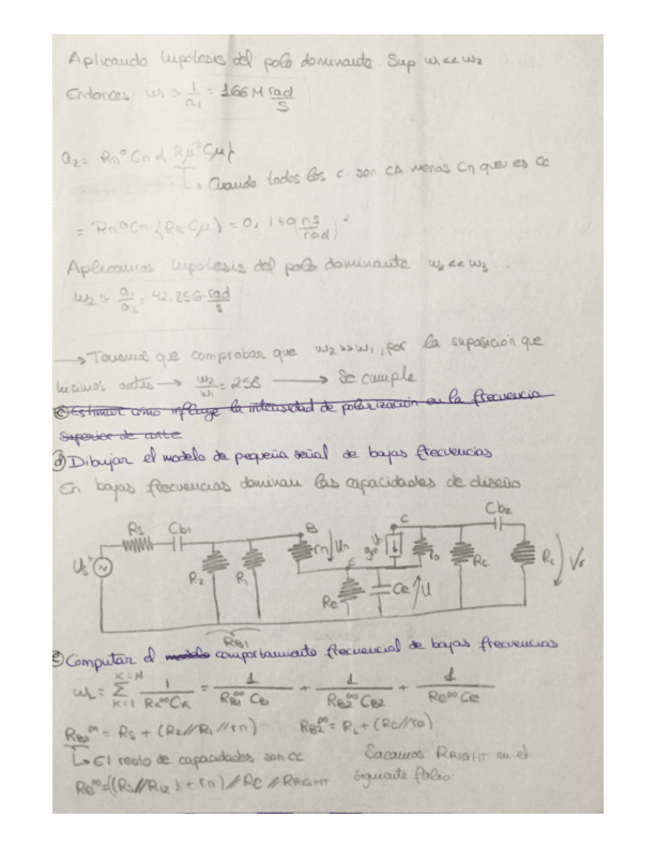 Aplicando hipótesis del polo dominante. Sup ω₁<<ω₂
Entonces, ω₁ ≃ 1/a₁ = 166 M rad/s
a₂ = Rπ⁰ Cπ { Rμ^π Cμ }
↳ Cuando todos los C son CA menos Cπ que es CC
= Rπ⁰Cπ {Rs Cμ} = 0,140 (ns/rad)²
Aplicamos hipótesis del polo dominante ω₂<<ω₃...
ω₂ ≃ a₁/a₂ = 42.85G rad/s
→ Tenemos que comprobar que ω₂>>ω₁, por la suposición que
hicimos antes → ω₂/ω₁ = 258 → Se cumple
c) Estimar cómo influye la intensidad de polarización en la frecuencia
superior de corte
d) Dibujar el modelo de pequeña señal de bajas frecuencias
En bajas frecuencias dominan las capacidades de diseño
Rs Cb1 R2 R1 B rπ Uπ E Re Ce U C ro Rc Cb2 RL
RB1
e) Computar el modelo comportamiento frecuencial de bajas frecuencias
ωL = Σ K=1 K=N 1/(Rk^∞ Ck) = 1/(RB1^∞ CB1) + 1/(RB2^∞ CB2) + 1/(Re^∞ Ce)
RB1^∞ = Rs + (R2//R1//rπ) RB2^∞ = RL + (Rc//ro)
↳ El resto de capacidades son CC Sacamos RRIGHT en el
siguiente folio
Re^∞ = ((R1//R2) + rπ) // Re // RRIGHT